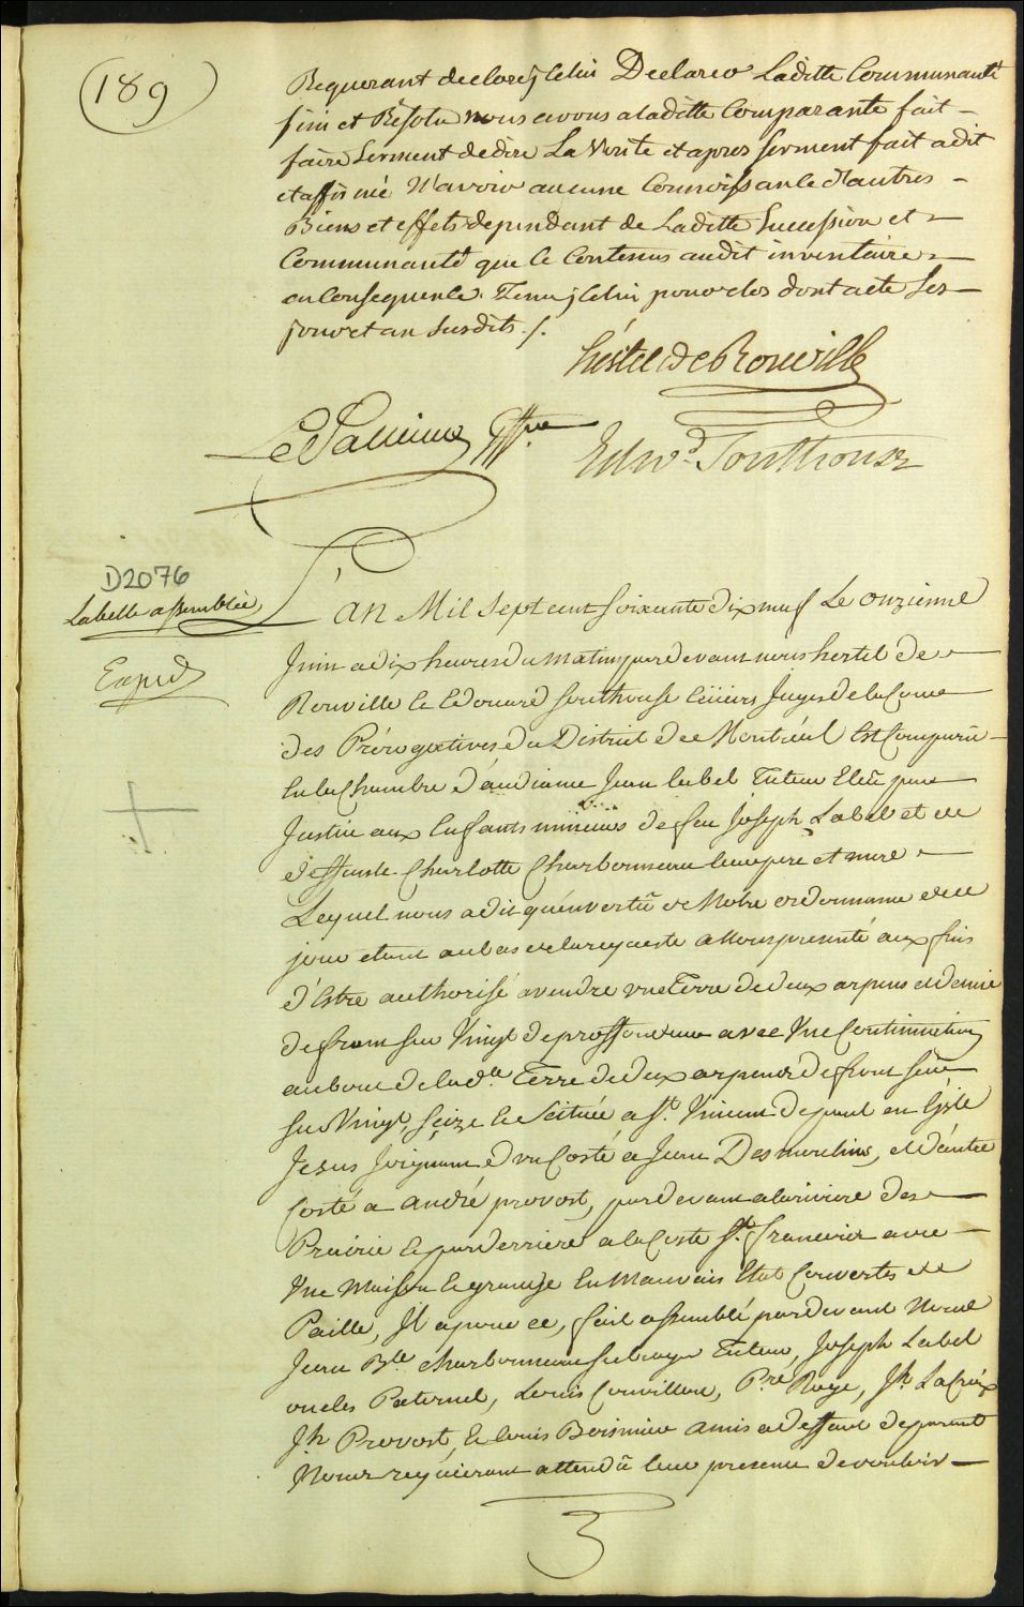 (189)
Requerant declorej Celui Declarer Laditte Communauté
fini et Résolu nous avons aladitte Comparante fait –
faire Serment de dire La Verité et apres serment fait a dit
et affirmé N'avoir aucune Connoissance d'autres –
Biens et effets dependant de Laditte Succession et –
Communauté que Ce Contenus audit inventaire –
en Consequence. Tenu j Celui pour clos dont acte Les –
jour et an susdits ./.
hertel De Rouville
Edwd. Southouse
D2076
Labelle assemblée,
Exped
L'an Mil Sept cent soixante dix neuf Le onzienne
Juin a dix heures du matin par devant nous hertel de
Rouville & Edouard southouse Ecüiers Juges de la Cour
des Prérogatives du District de Montréal Est Comparu –
En la Chambre d'audiance Jean label Tuteur Elëu par
Justice aux Enfants mineurs de feu Joseph Label et de
deffunte Charlotte Charbonneau leur pere et mere
Lequel nous a dit qu'en vertü de Notre ordonnance de ce
jour etant au bas de la requeste a Nous presenté aux fins
d'Estre authorisé a vendre une Terre de deux arpens et demie
de front sur Vingt de proffondeur avec Une Continuation
au bout de lad.te Terre de deux arpens de front
sur Vingt, Seize & Scituée a St. Vincent de paul en L'isle
Jesus Joignant d'un Costé a Jean Desmoulins, et d'autre
Costé a andré provost, par devant a la riviere des
Prairie & par derriere a la Coste St. francois avec –
Une Maison & grange En Mauvais Etat Couvertes de
Paille, Il a pour ce, fait assemblé par devant Nous
Jean Bte. charbonneau subrogé Tuteur, Joseph Label
oncles Paternel, Louis Couvillon, Prre Roye, Jh. LaCroix
Jh Provost, & louis Boismier amis a deffaut de parent
Nous requerant attendü leur presence de vouloir –